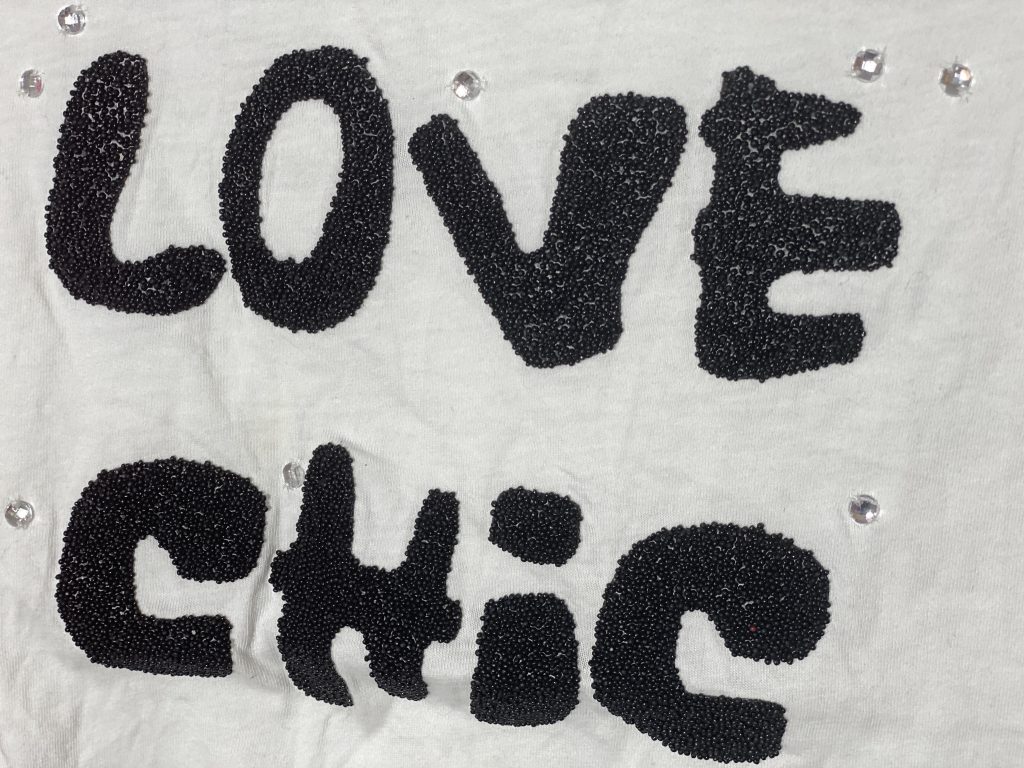 LOVE
CHiC